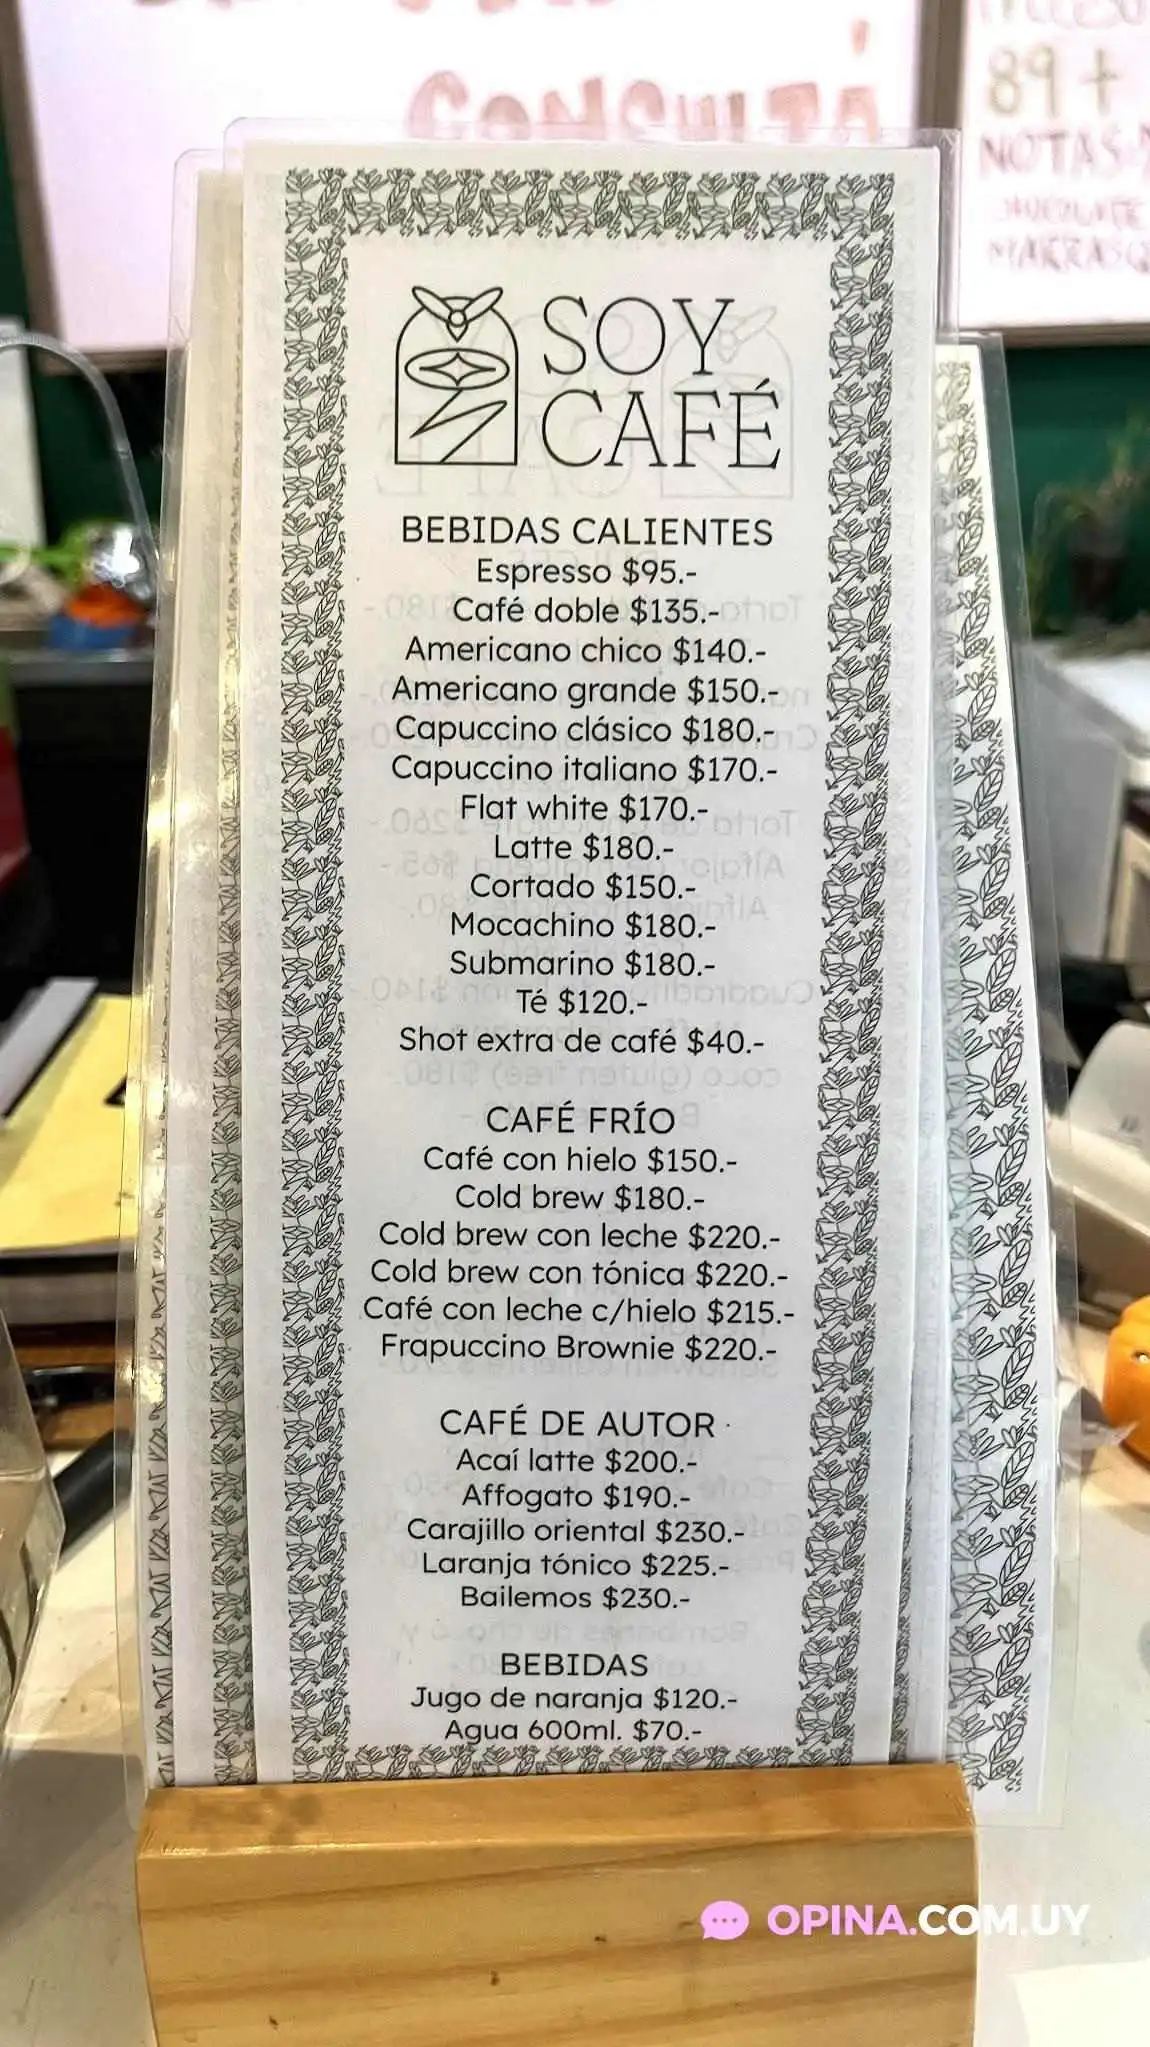 CONSULTÁ
89+
NOTAS
CHOCOLATE
SOY
CAFÉ
BEBIDAS CALIENTES
Espresso $95.-
Café doble $135.-
Americano chico $140.-
Americano grande $150.-
Capuccino clásico $180.-
Capuccino italiano $170.-
Flat white $170.-
Latte $180.-
Cortado $150.-
Mocachino $180.-
Submarino $180.-
Té $120.-
Shot extra de café $40.-
CAFÉ FRÍO
Café con hielo $150.-
Cold brew $180.-
Cold brew con leche $220.-
Cold brew con tónica $220.-
Café con leche c/hielo $215.-
Frapuccino Brownie $220.-
CAFÉ DE AUTOR
Acaí latte $200.-
Affogato $190.-
Carajillo oriental $230.-
Laranja tónico $225.-
Bailemos $230.-
BEBIDAS
Jugo de naranja $120.-
Agua 600ml. $70.-
OPINA.COM.UY